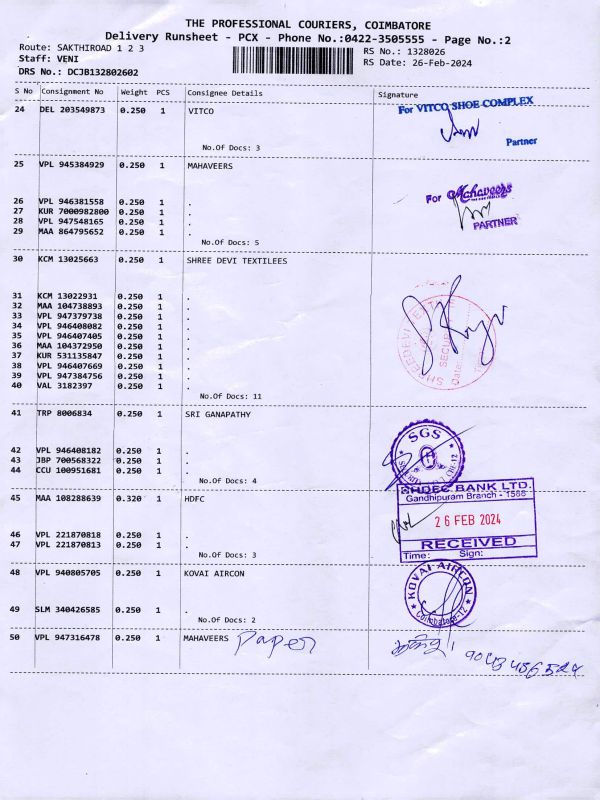 THE PROFESSIONAL COURIERS, COIMBATORE
Delivery Runsheet - PCX - Phone No.:0422-3505555 - Page No.:2
Route: SAKTHIROAD 1 2 3 RS No.: 1328026
Staff: VENI RS Date: 26-Feb-2024
DRS No.: DCJB132802602
S No Consignment No Weight PCS Consignee Details Signature
24 DEL 203549873 0.250 1 VITCO
For VITCO SHOE COMPLEX
Partner
No.Of Docs: 3
25 VPL 945384929 0.250 1 MAHAVEERS
For Mahaveers
PARTNER
26 VPL 946381558 0.250 1 .
27 KUR 7000982800 0.250 1 .
28 VPL 947548165 0.250 1 .
29 MAA 864795652 0.250 1 .
No.Of Docs: 5
30 KCM 13025663 0.250 1 SHREE DEVI TEXTILEES
31 KCM 13022931 0.250 1 .
32 MAA 104738893 0.250 1 .
33 VPL 947379738 0.250 1 .
34 VPL 946408082 0.250 1 .
35 VPL 946407405 0.250 1 .
36 MAA 104372950 0.250 1 .
37 KUR 531135847 0.250 1 .
38 VPL 946407669 0.250 1 .
39 VPL 947384756 0.250 1 .
40 VAL 3182397 0.250 1 .
No.Of Docs: 11
SHREEDEVI
SECURITY
Date:
41 TRP 8006834 0.250 1 SRI GANAPATHY
42 VPL 946408182 0.250 1 .
43 JBP 700568322 0.250 1 .
44 CCU 100951681 0.250 1 .
No.Of Docs: 4
SGS
45 MAA 108288639 0.320 1 HDFC
46 VPL 221870818 0.250 1 .
47 VPL 221870813 0.250 1 .
No.Of Docs: 3
BANK LTD.
Gandhipuram Branch - 1566
26 FEB 2024
RECEIVED
Time: Sign:
48 VPL 940805705 0.250 1 KOVAI AIRCON
49 SLM 340426585 0.250 1 .
No.Of Docs: 2
KOVAI AIRCON
Coimbatore-12
50 VPL 947316478 0.250 1 MAHAVEERS Paper